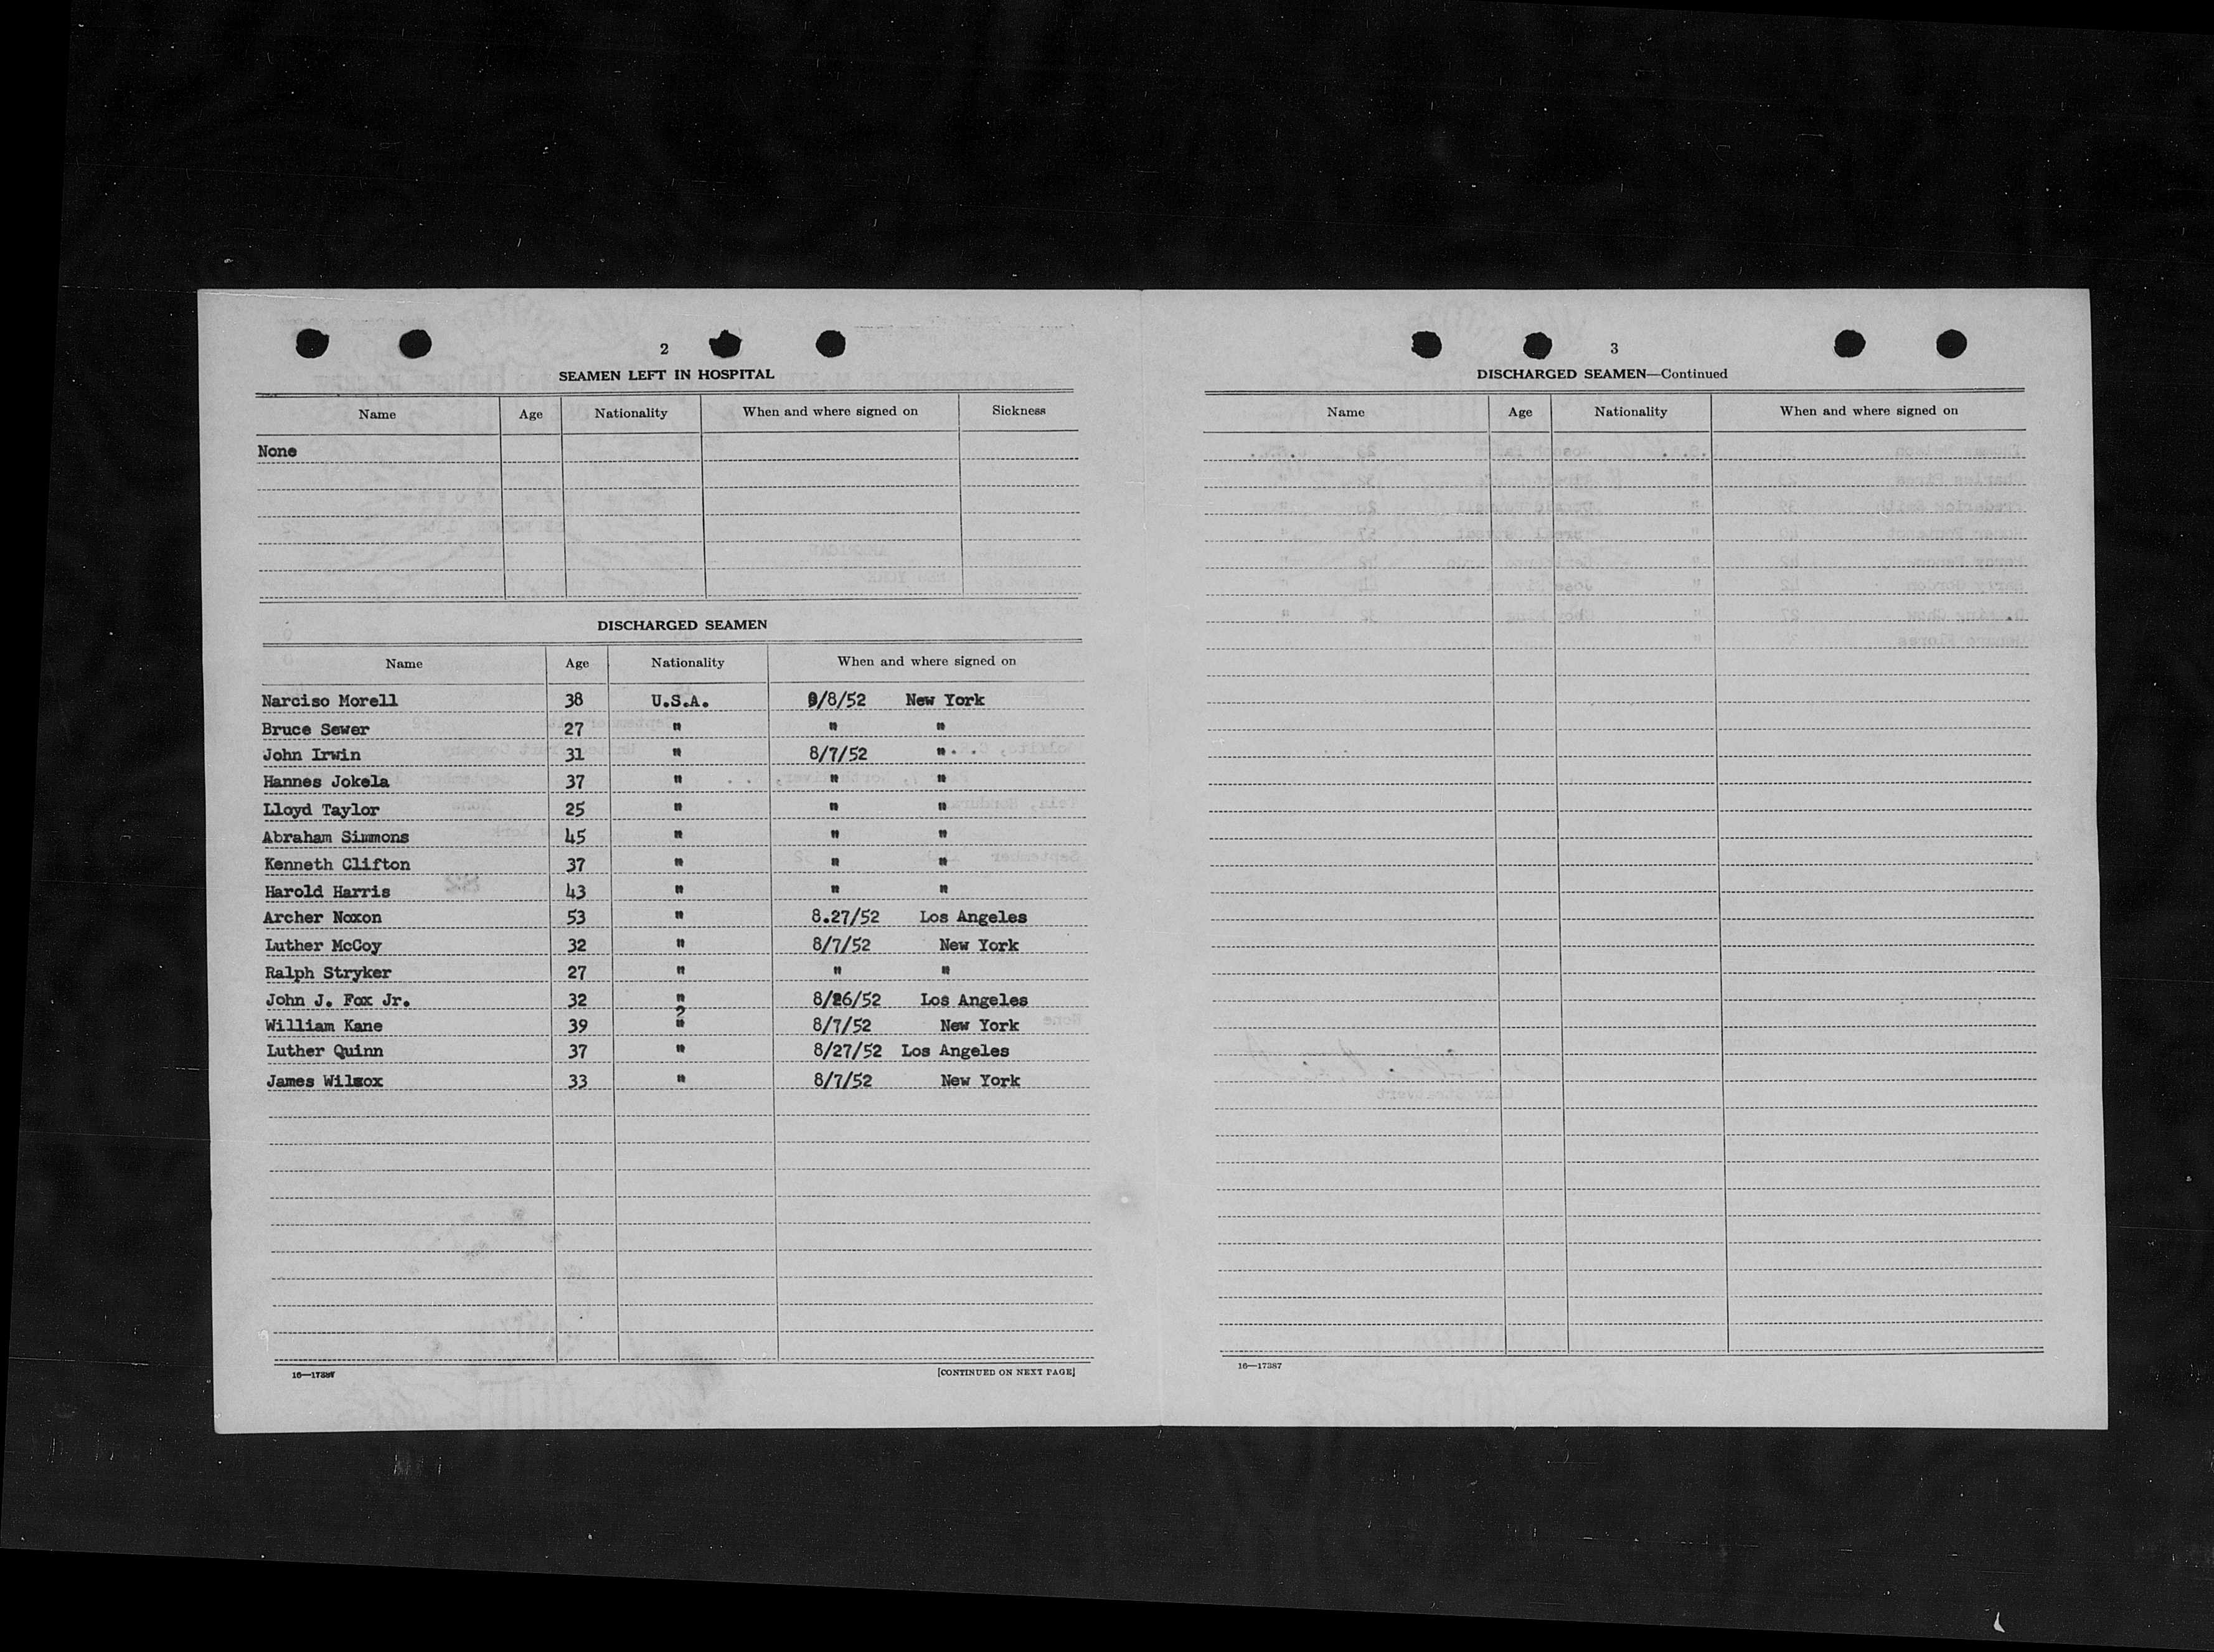 2
SEAMEN LEFT IN HOSPITAL
Name Age Nationality When and where signed on Sickness
None
DISCHARGED SEAMEN
Name Age Nationality When and where signed on
Narciso Morell 38 U.S.A. 9/8/52 New York
Bruce Sewer 27 " " "
John Irwin 31 " 8/7/52 "
Hannes Jokela 37 " " "
Lloyd Taylor 25 " " "
Abraham Simmons 45 " " "
Kenneth Clifton 37 " " "
Harold Harris 43 " " "
Archer Noxon 53 " 8.27/52 Los Angeles
Luther McCoy 32 " 8/7/52 New York
Ralph Stryker 27 " " "
John J. Fox Jr. 32 " 8/26/52 Los Angeles
William Kane 39 ? " 8/7/52 New York
Luther Quinn 37 " 8/27/52 Los Angeles
James Wilcox 33 " 8/7/52 New York
16—17387 [CONTINUED ON NEXT PAGE]
3
DISCHARGED SEAMEN—Continued
Name Age Nationality When and where signed on
16—17387